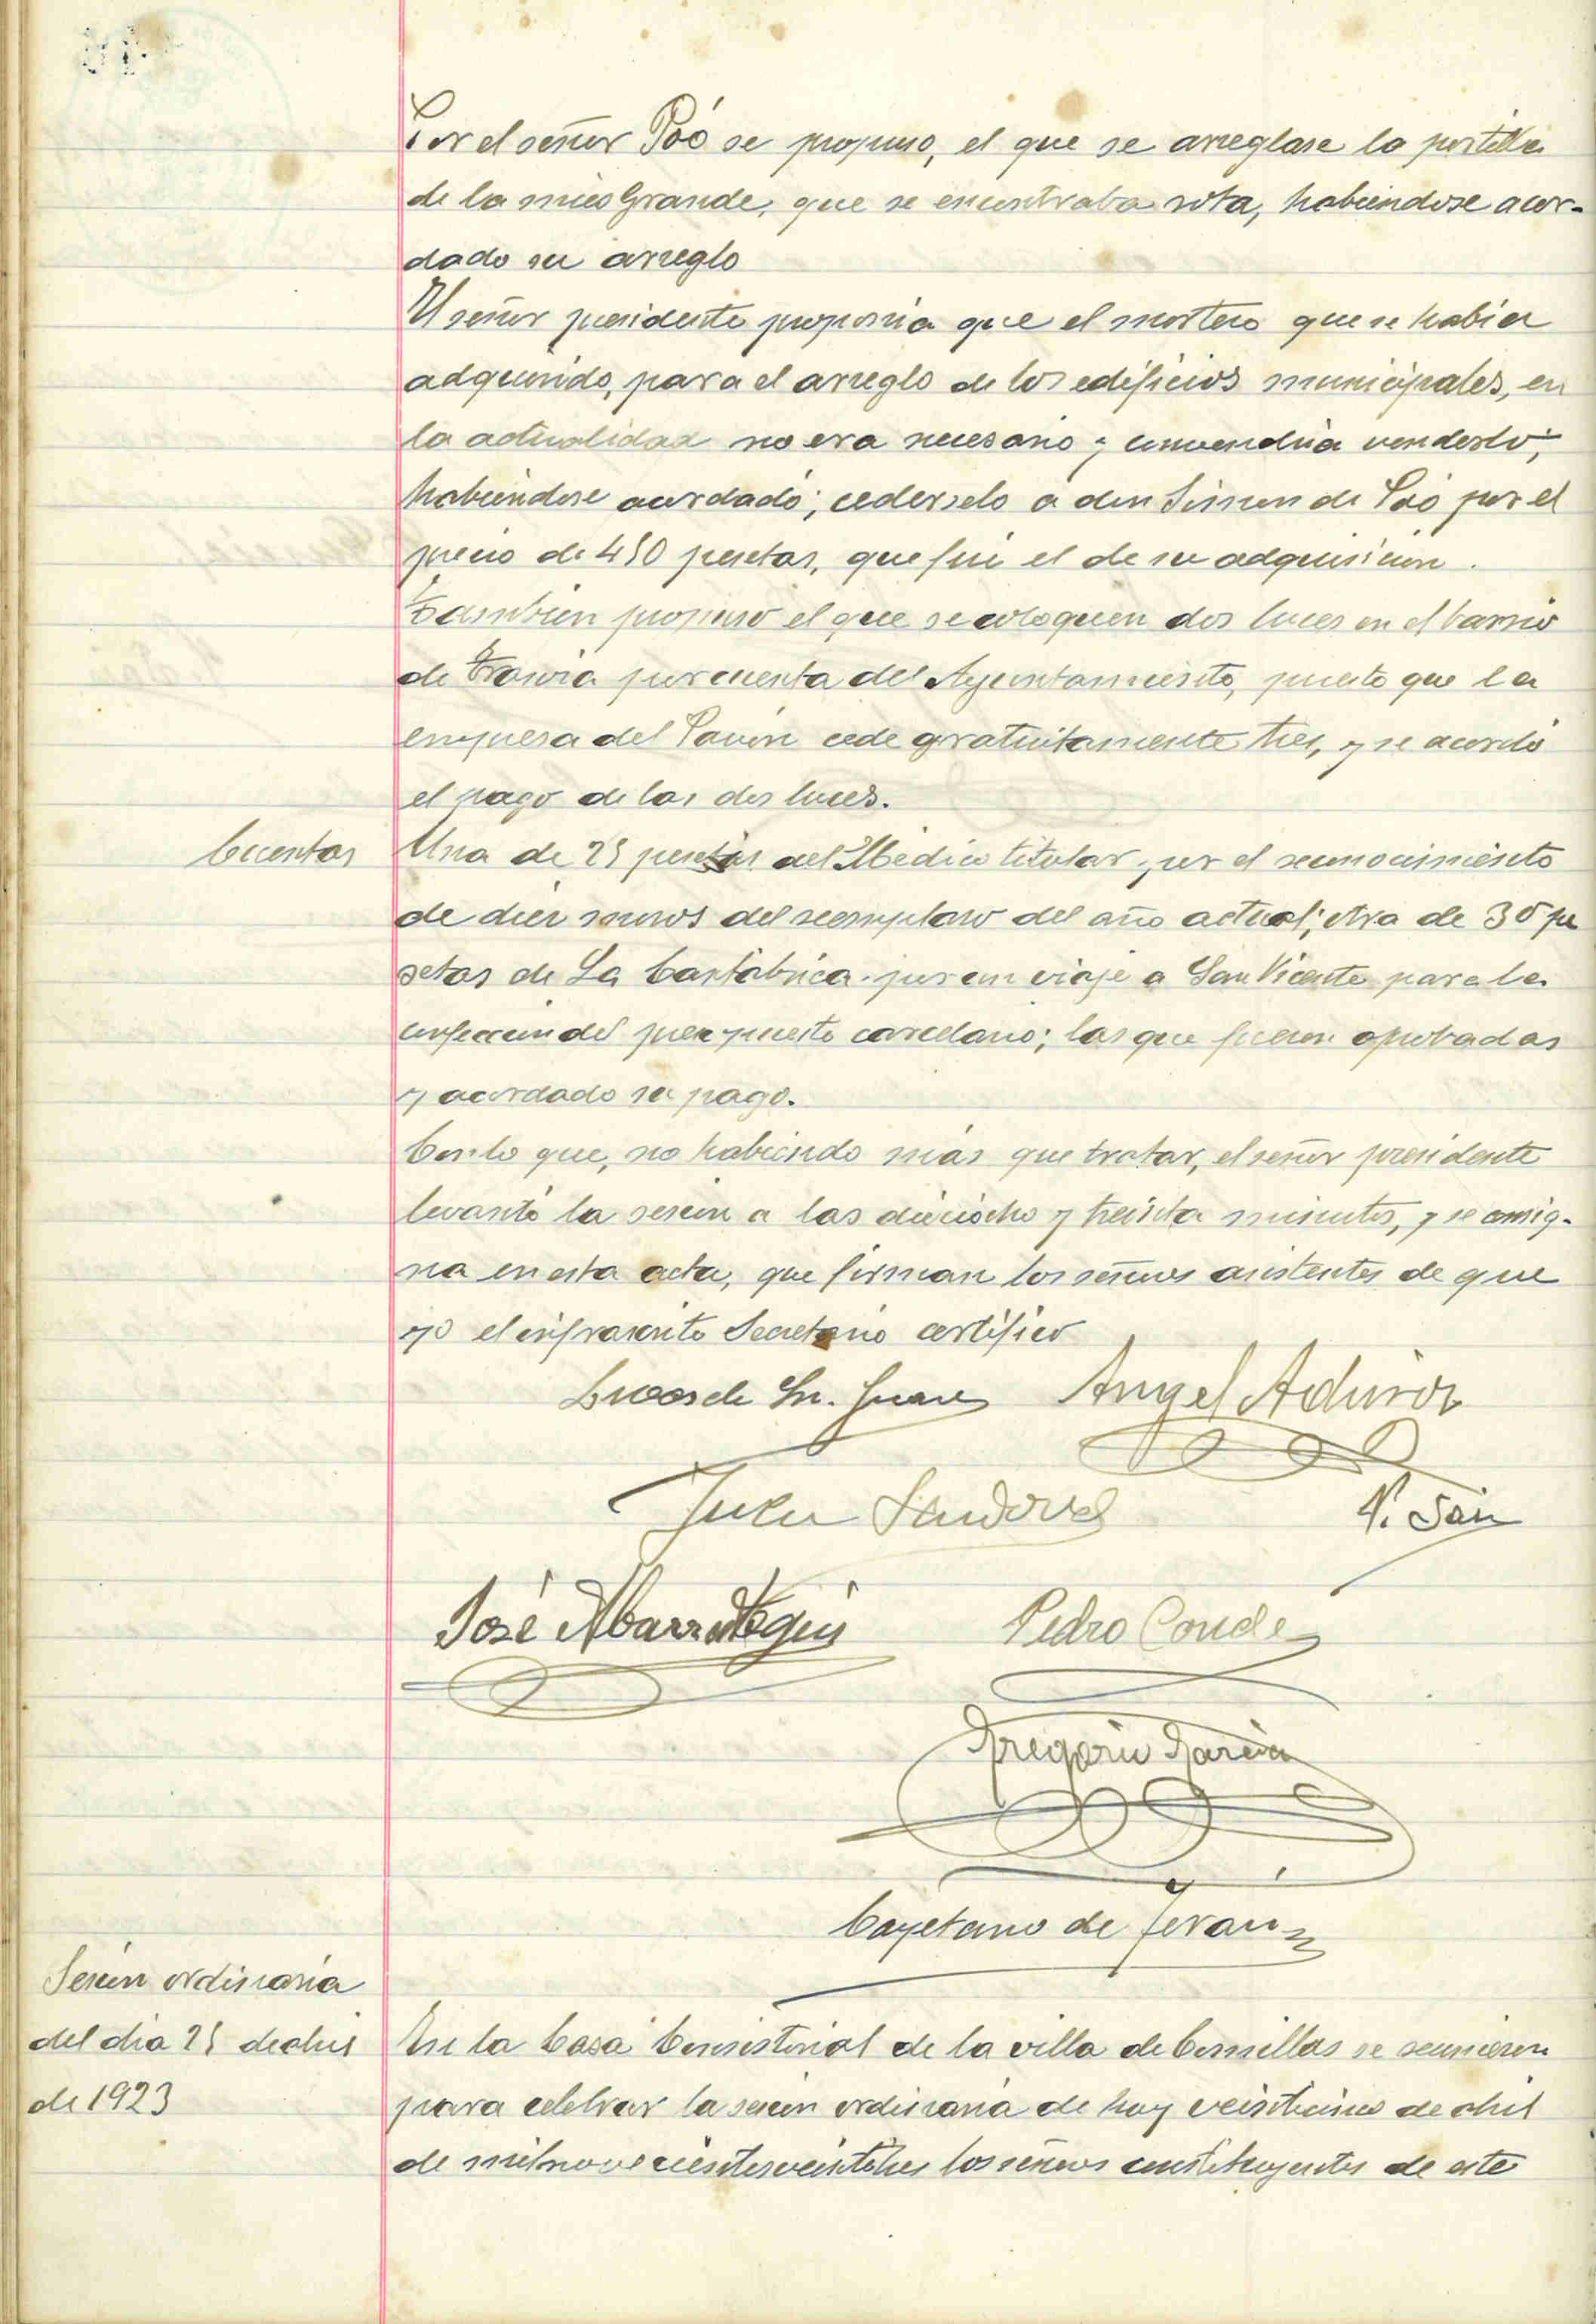 Por el señor Poó se propuso, el que se arreglase la portilla
de la mies Grande, que se encontraba rota, habiéndose acor-
dado su arreglo
El señor presidente proponía que el mortero que se había
adquirido, para el arreglo de los edificios municipales, en
la actualidad no era necesario y convendría venderlo;
habiéndose acordado; cederselo a don Simon de Poó por el
precio de 450 pesetas, que fué el de su adquisición.
También propuso el que se coloquen dos luces en el barrio
de por cuenta del Ayuntamiento, puesto que la
empresa del cede gratuitamente tres, y se acordó
el pago de las dos luces.
Cuentas
Una de 25 pesetas del Médico titular por el reconocimiento
de diez mozos del reemplazo del año actual; otra de 30 pe
setas de La Cantábrica por un viaje a San Vicente para la
confección del presupuesto carcelario; las que fueron aprobadas
y acordado su pago.
Con lo que, no habiendo más que tratar, el señor presidente
levantó la sesión a las dieciocho y treinta minutos, y se consig-
na en esta acta, que firman los señores asistentes de que
yo el infrascrito Secretario certifico
Lucas de Sn. Juan Angel
Julian Sandoval
José Abarrategui Pedro Conde
Gregorio Garcia
Cayetano de Terán
Sesión ordinaria
del dia 25 de abril
de 1923
En la Casa Consistorial de la villa de Comillas se reunieron
para celebrar la sesión ordinaria de hoy veinticinco de abril
de mil novecientos veintitres los señores constituyentes de este